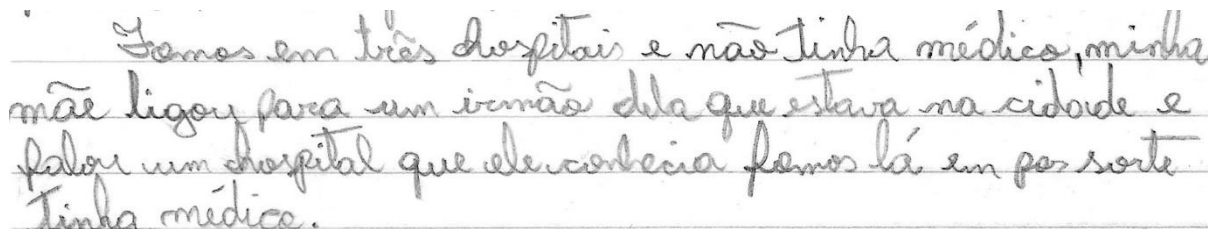 Fomos em três hospitais e não tinha médico, minha
mãe ligou para um irmão dela que estava na cidade e
falou um hospital que ele conhecia fomos lá em por sorte
tinha médico.